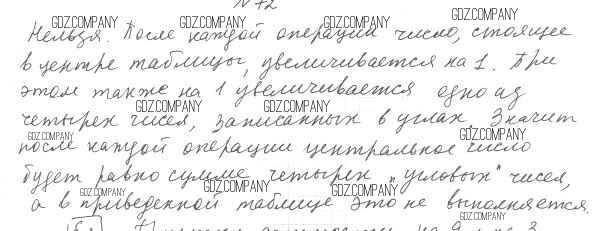 N 72
GDZ.COMPANY GDZ.COMPANY GDZ.COMPANY GDZ.COMPANY
Нельзя. После каждой операции число, стоящее
в центре таблицы, увеличивается на 1. При
этом также на 1 увеличивается одно из
GDZ.COMPANY GDZ.COMPANY
четырех чисел, записанных в углах. Значит
GDZ.COMPANY GDZ.COMPANY
после каждой операции центральное число
будет равно сумме четырех „угловых" чисел,
GDZ.COMPANY GDZ.COMPANY GDZ.COMPANY
а в приведенной таблице это не выполняется.
GDZ.COMPANY